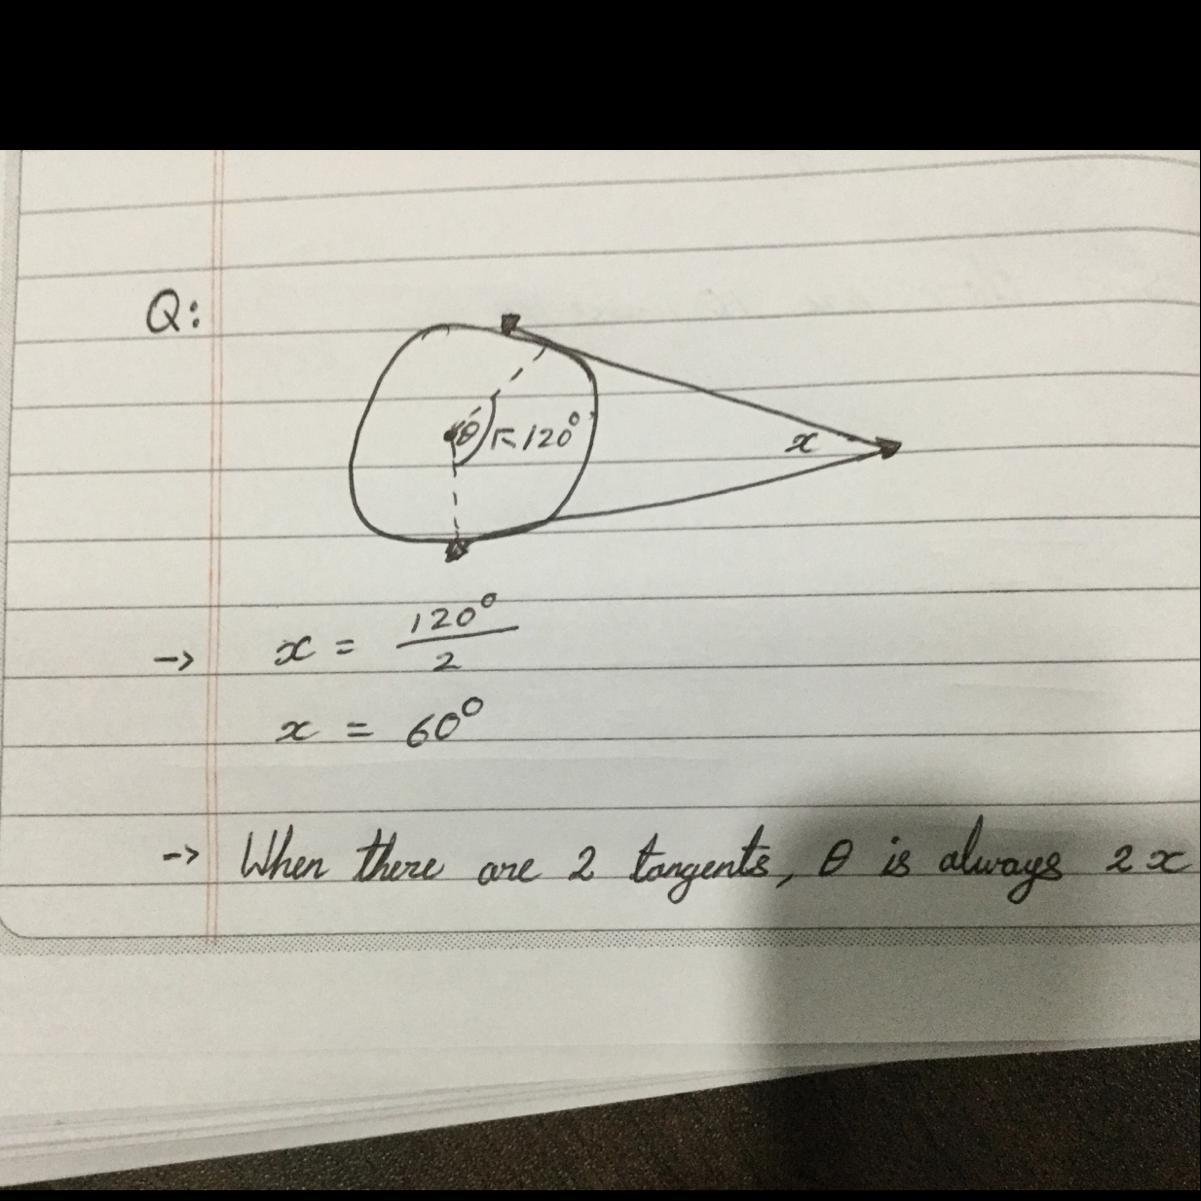 Q:
θ 120°
x
-> x = 120°/2
x = 60°
-> When there are 2 tangents, θ is always 2x